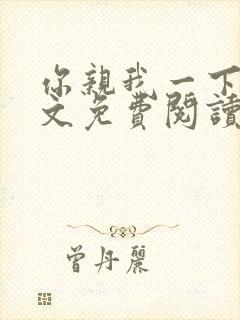 你親我一下
文免費閱讀
曾丹麗